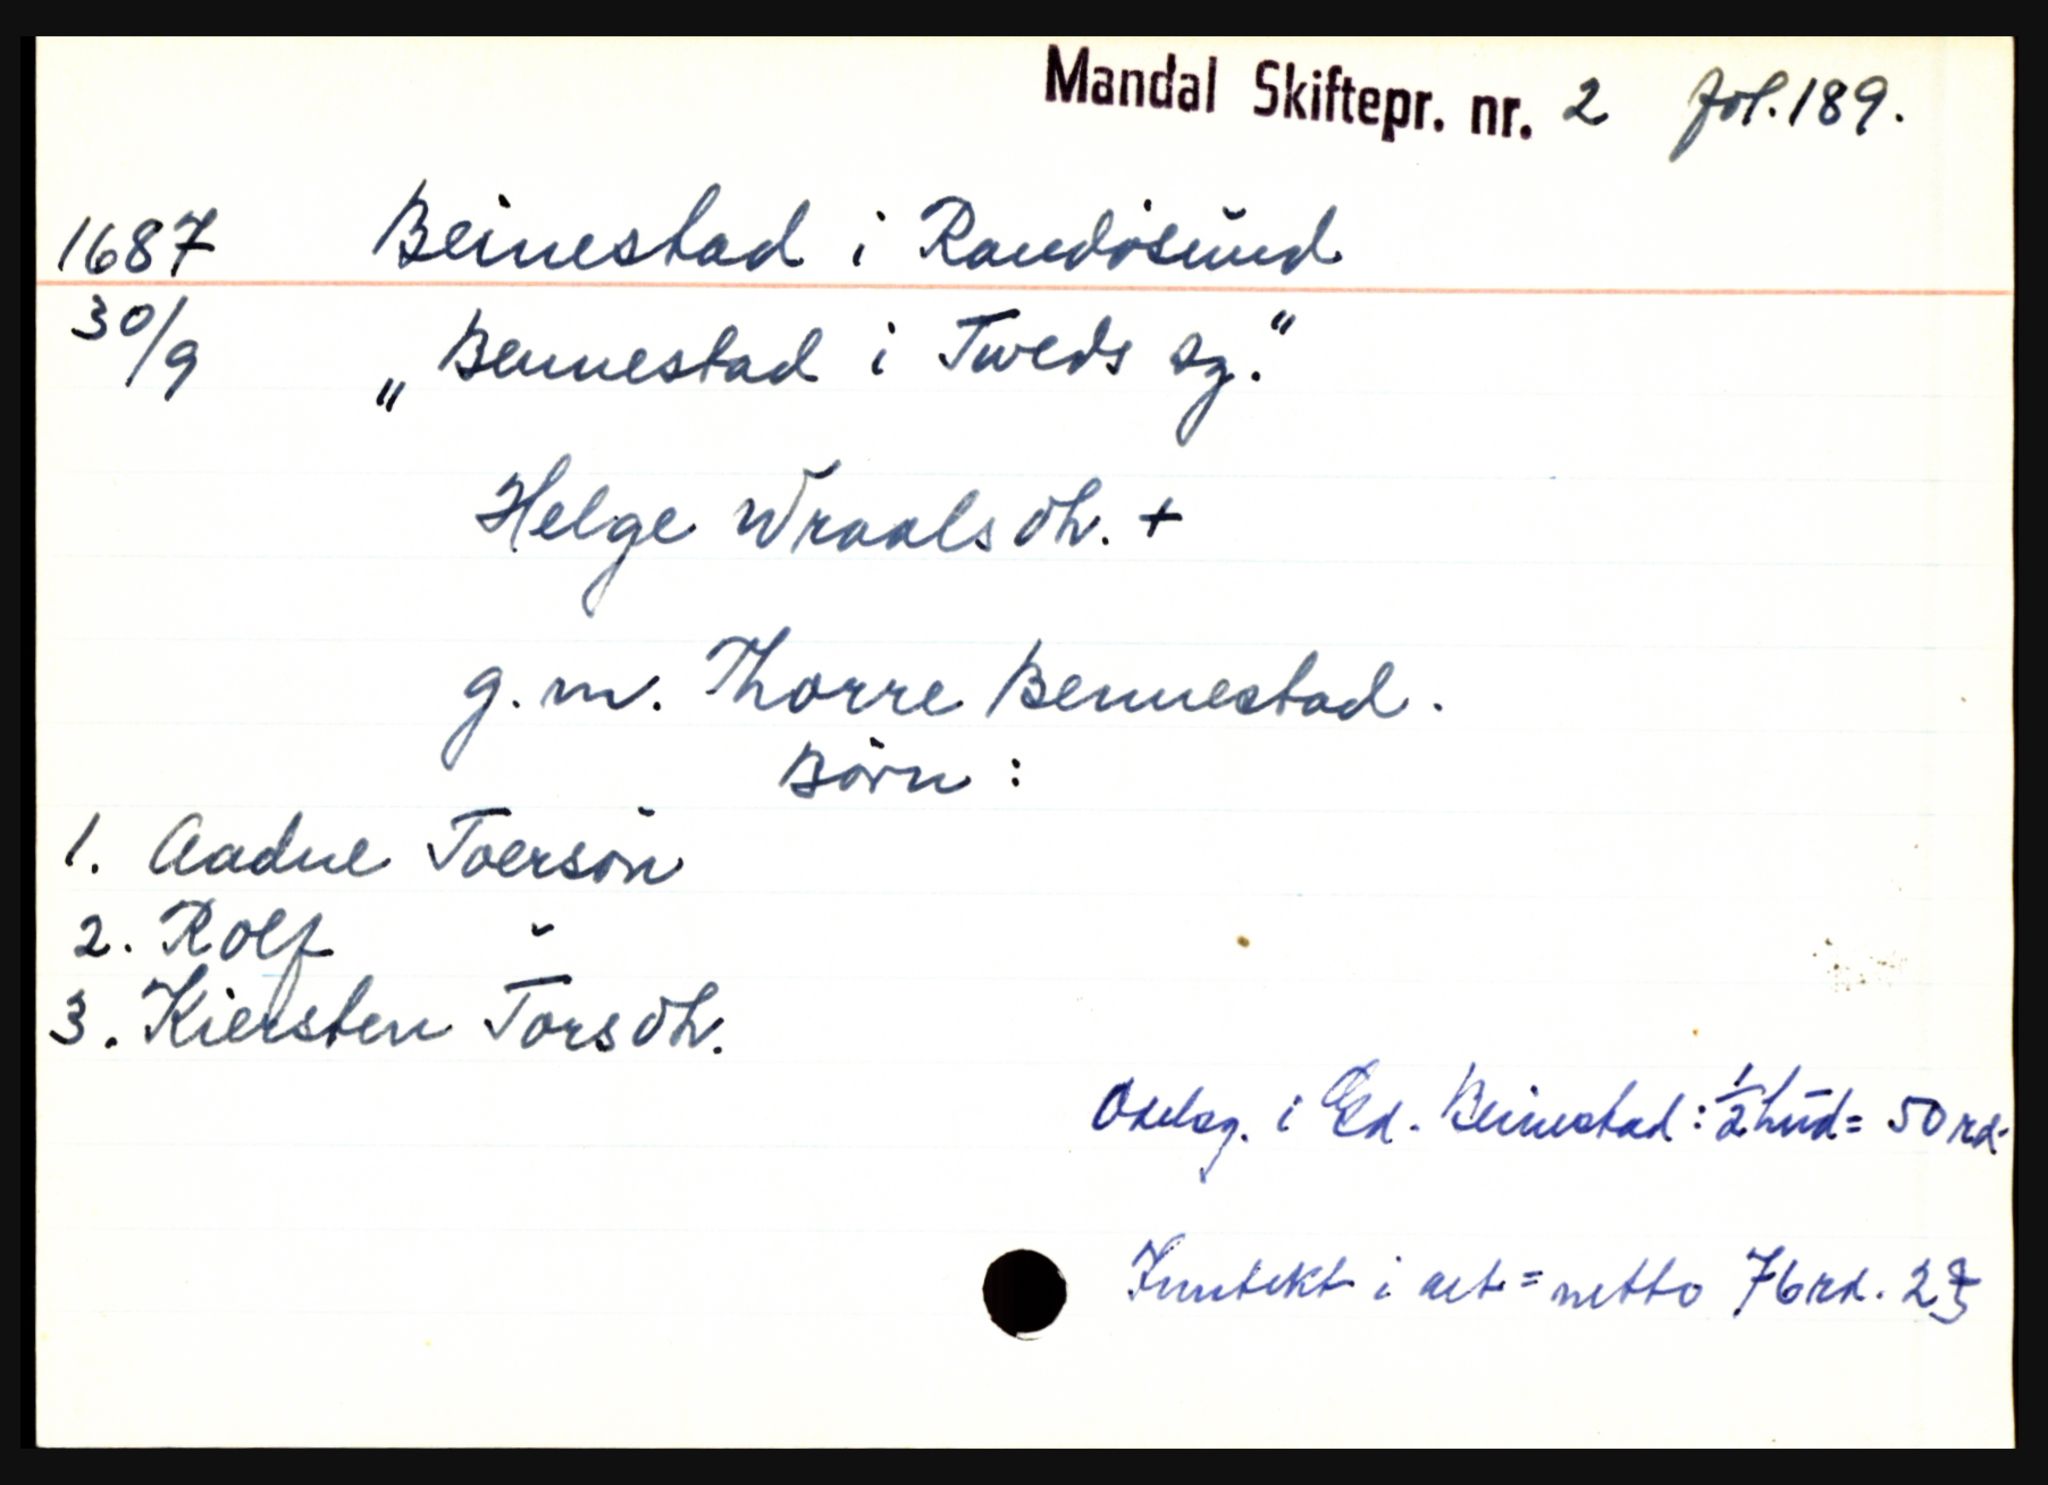 Mandal Skiftepr. nr. 2 fol. 189.
1687 Beinestad i Randøsund
30/9 „Bennestad i Tweds sg."
Helge Wraalsdh. +
g. m. Thorre Bennestad.
Børn:
1. Aadne Toersøn
2. Rolf "
3. Kiersten Torsdh.
Odelsg. i Gd. Beinestad: 1/2 hud = 50 rd.
Inntekt i alt = netto 76 rd. 2